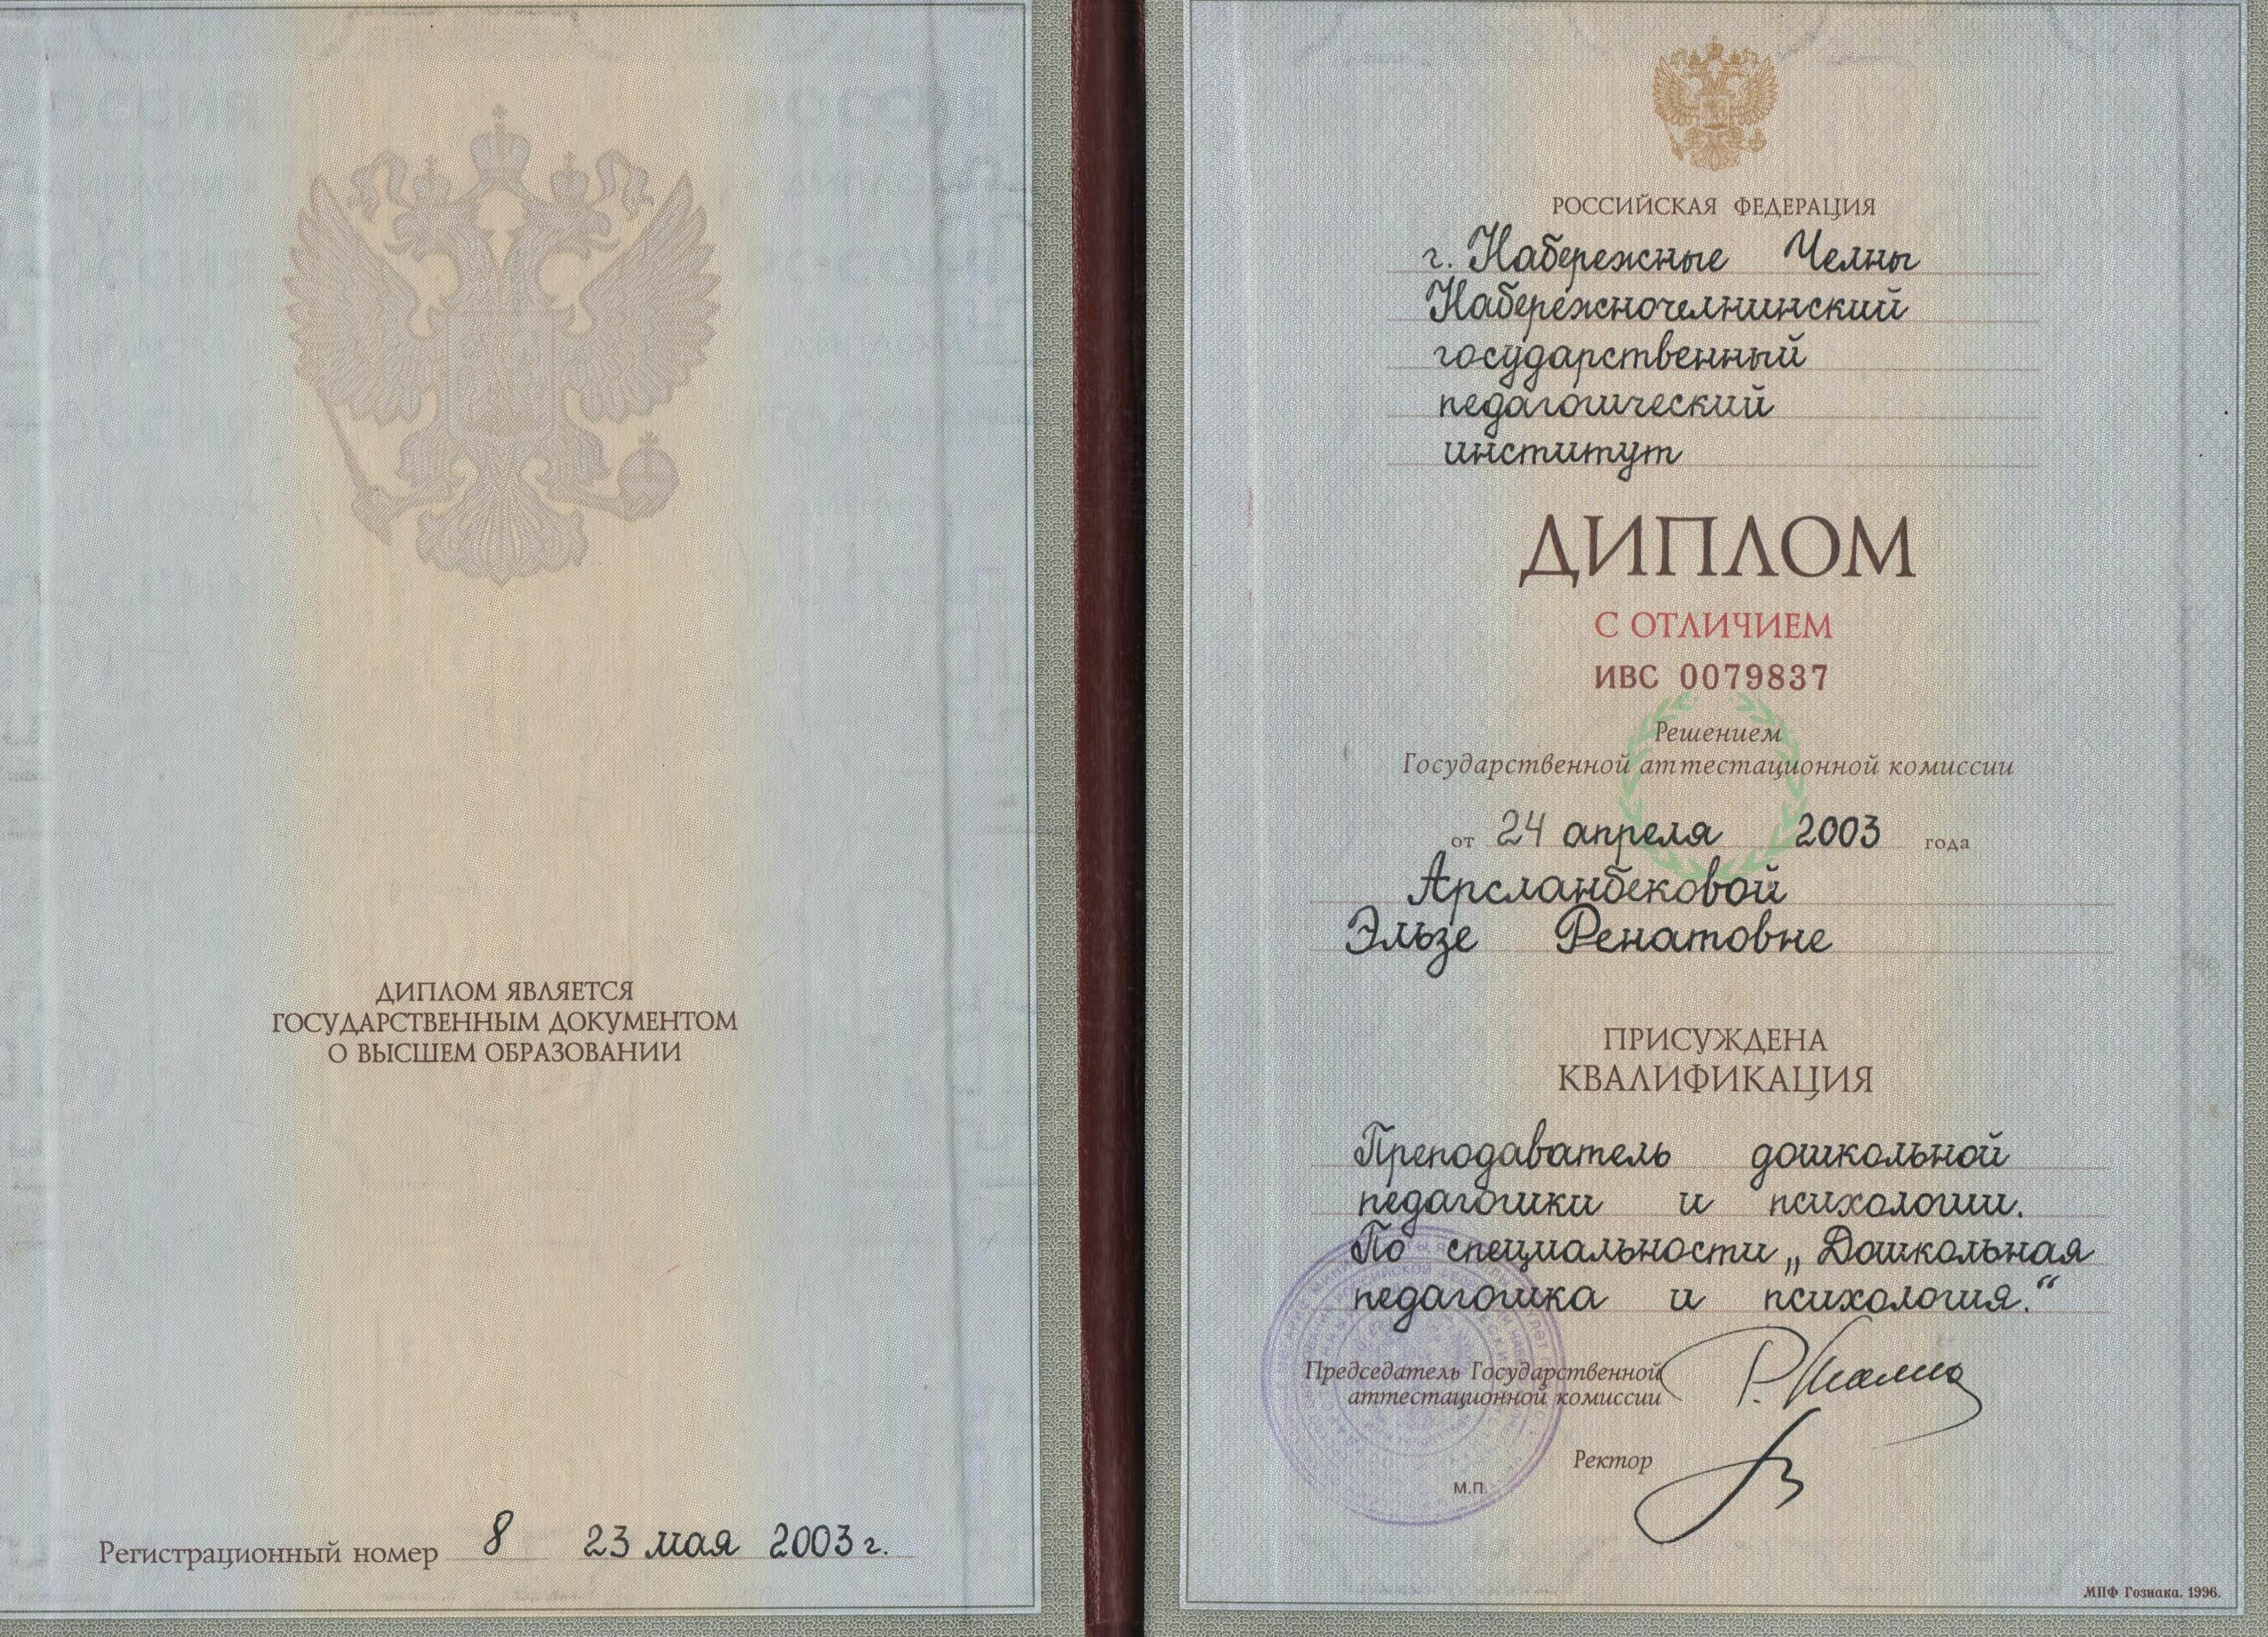 ДИПЛОМ ЯВЛЯЕТСЯ
ГОСУДАРСТВЕННЫМ ДОКУМЕНТОМ
О ВЫСШЕМ ОБРАЗОВАНИИ
Регистрационный номер 8 23 мая 2003 г.
РОССИЙСКАЯ ФЕДЕРАЦИЯ
г. Набережные Челны
Набережночелнинский
государственный
педагогический
институт
ДИПЛОМ
С ОТЛИЧИЕМ
ИВС 0079837
Решением
Государственной аттестационной комиссии
от 24 апреля 2003 года
Арсланбековой
Эльзе Ренатовне
ПРИСУЖДЕНА
КВАЛИФИКАЦИЯ
Преподаватель дошкольной
педагогики и психологии.
По специальности „Дошкольная
педагогика и психология.“
Председатель Государственной
аттестационной комиссии
Ректор
М.П.
МПФ Гознака. 1996.